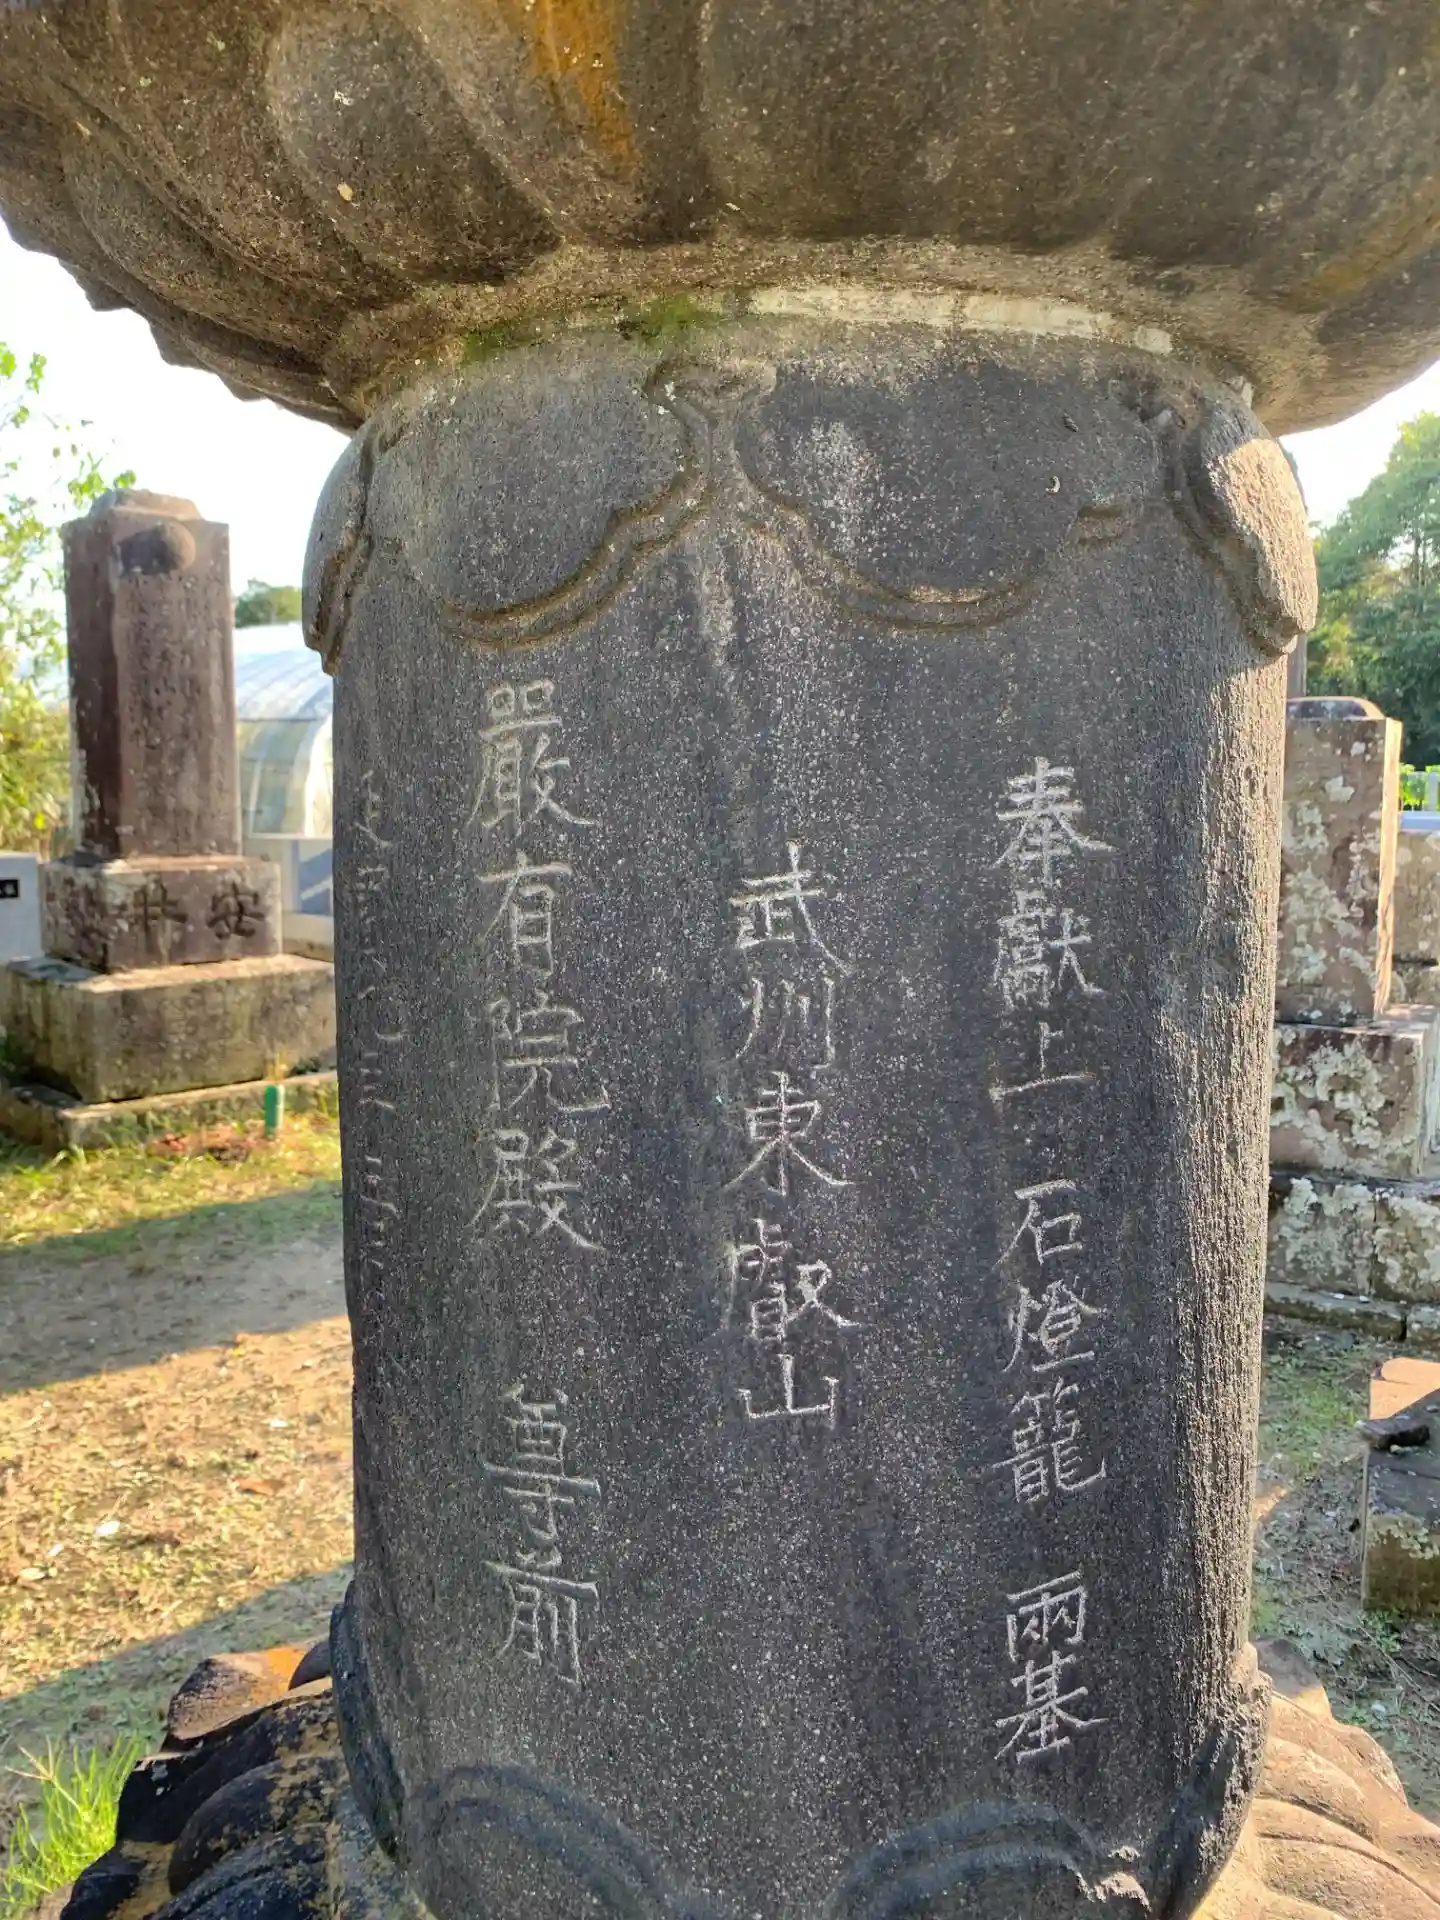 奉獻上 石燈籠 兩基
武州東叡山
嚴有院殿 尊前
安井